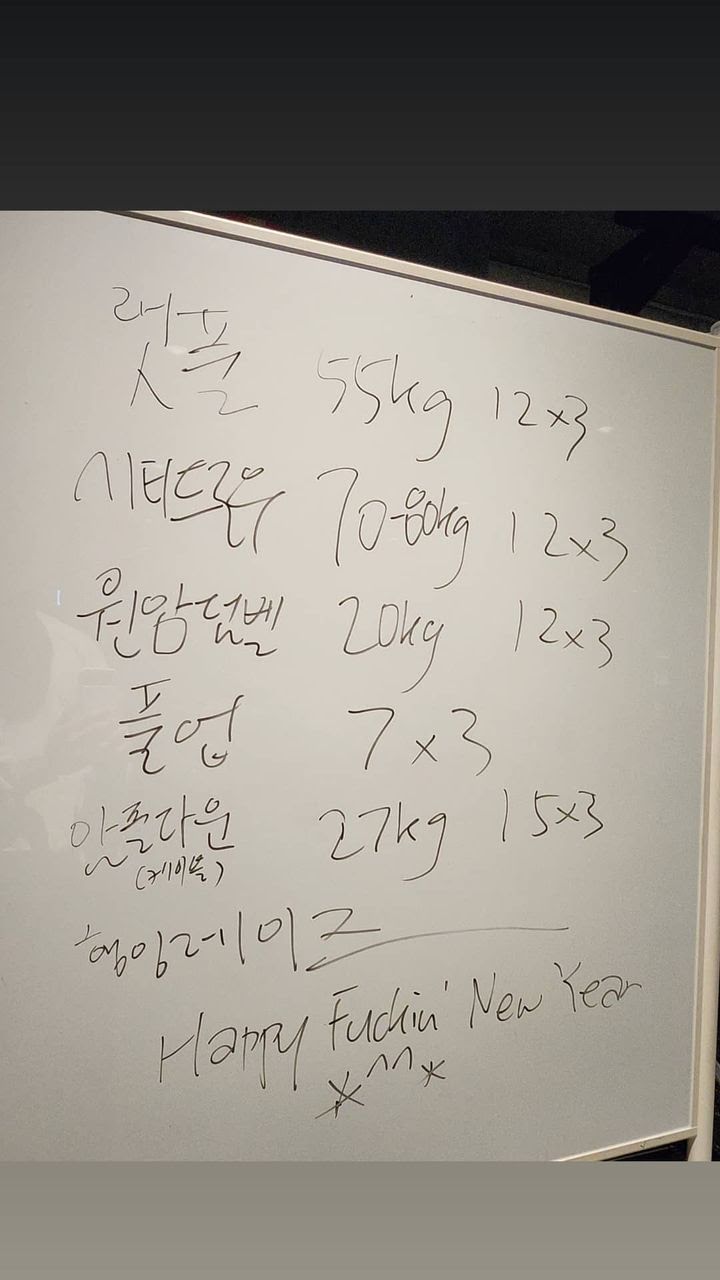 랫풀 55kg 12x3
시티드로우 70-80kg 12x3
원암덤벨 20kg 12x3
풀업 7x3
암풀다운 27kg 15x3
(케이블)
행잉레이즈
Happy Fuckin' New Year
*^^*